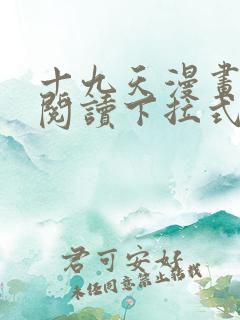 十九天漫畫
閱讀下拉式
君可安好
未经同意禁止转载